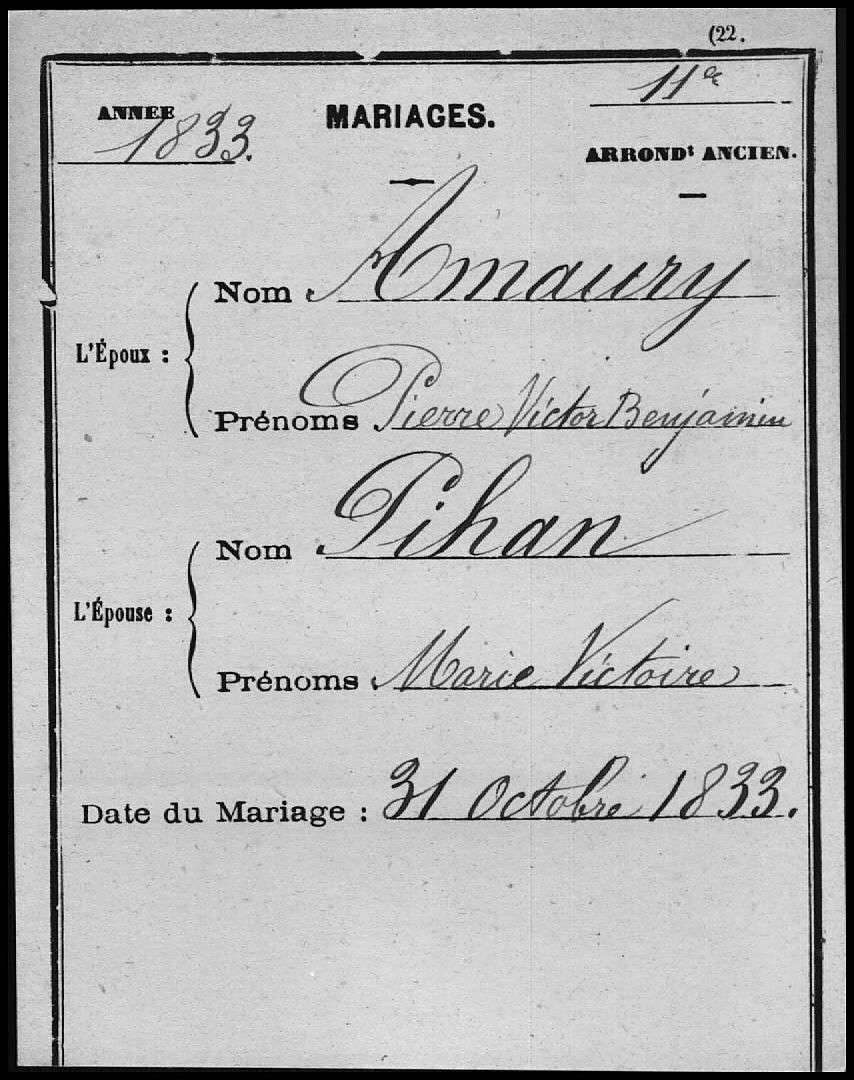 (22.
ANNEE 1833.
MARIAGES.
11e
ARRONDt ANCIEN.
L'Époux :
Nom Amaury
Prénoms Pierre Victor Benjamin
L'Épouse :
Nom Pihan
Prénoms Marie Victoire
Date du Mariage : 31 Octobre 1833.